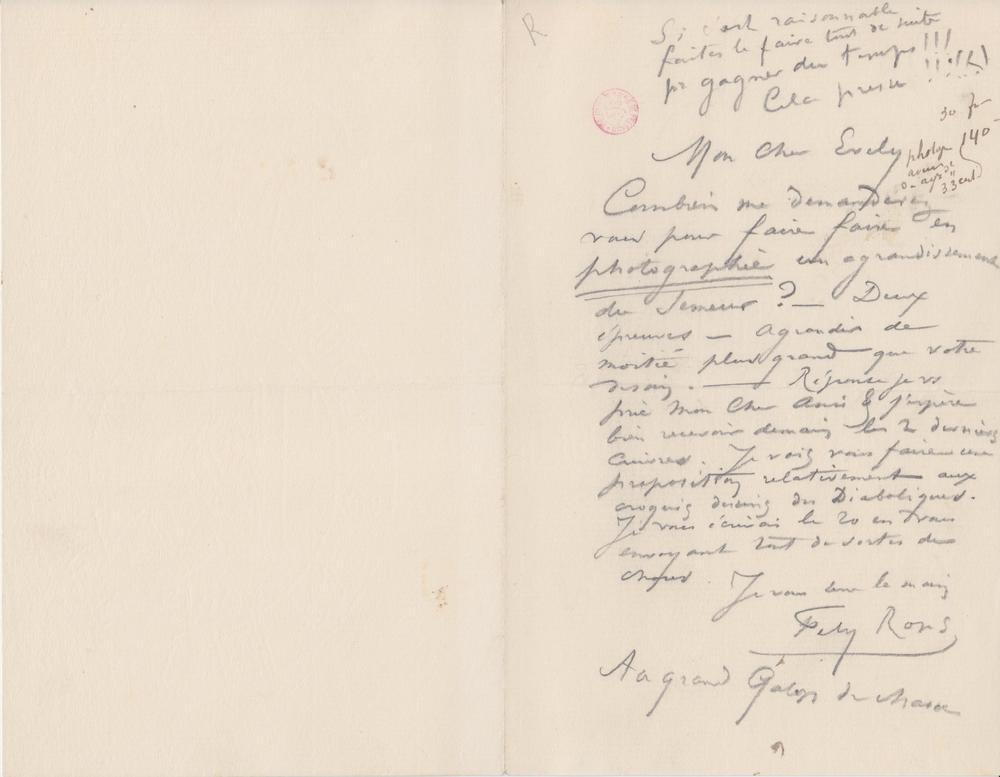 R
Si c'est raisonnable
faites le faire tout de suite
pr gagner du temps !!!
Cela presse !!!!!
30 fr
140 -
photogr
33 cent
Mon Cher Evely
Combien me demanderez
vous pour faire faire en
photographie un agrandissement
du Semeur ? — Deux
épreuves — agrandir de
moitié plus grand que votre
dessin. — Réponse je vs
prie Mon Cher Ami & j'espère
bien recevoir demain les 2 derniers
cuivres. Je vais vous faire une
proposition relativement aux
croquis dessins des Diaboliques.
Je vous écrirai le 20 en vous
envoyant tout de sortes de
choses.
Je vous serre la main
Fély Rops
Au grand Galop de chasse